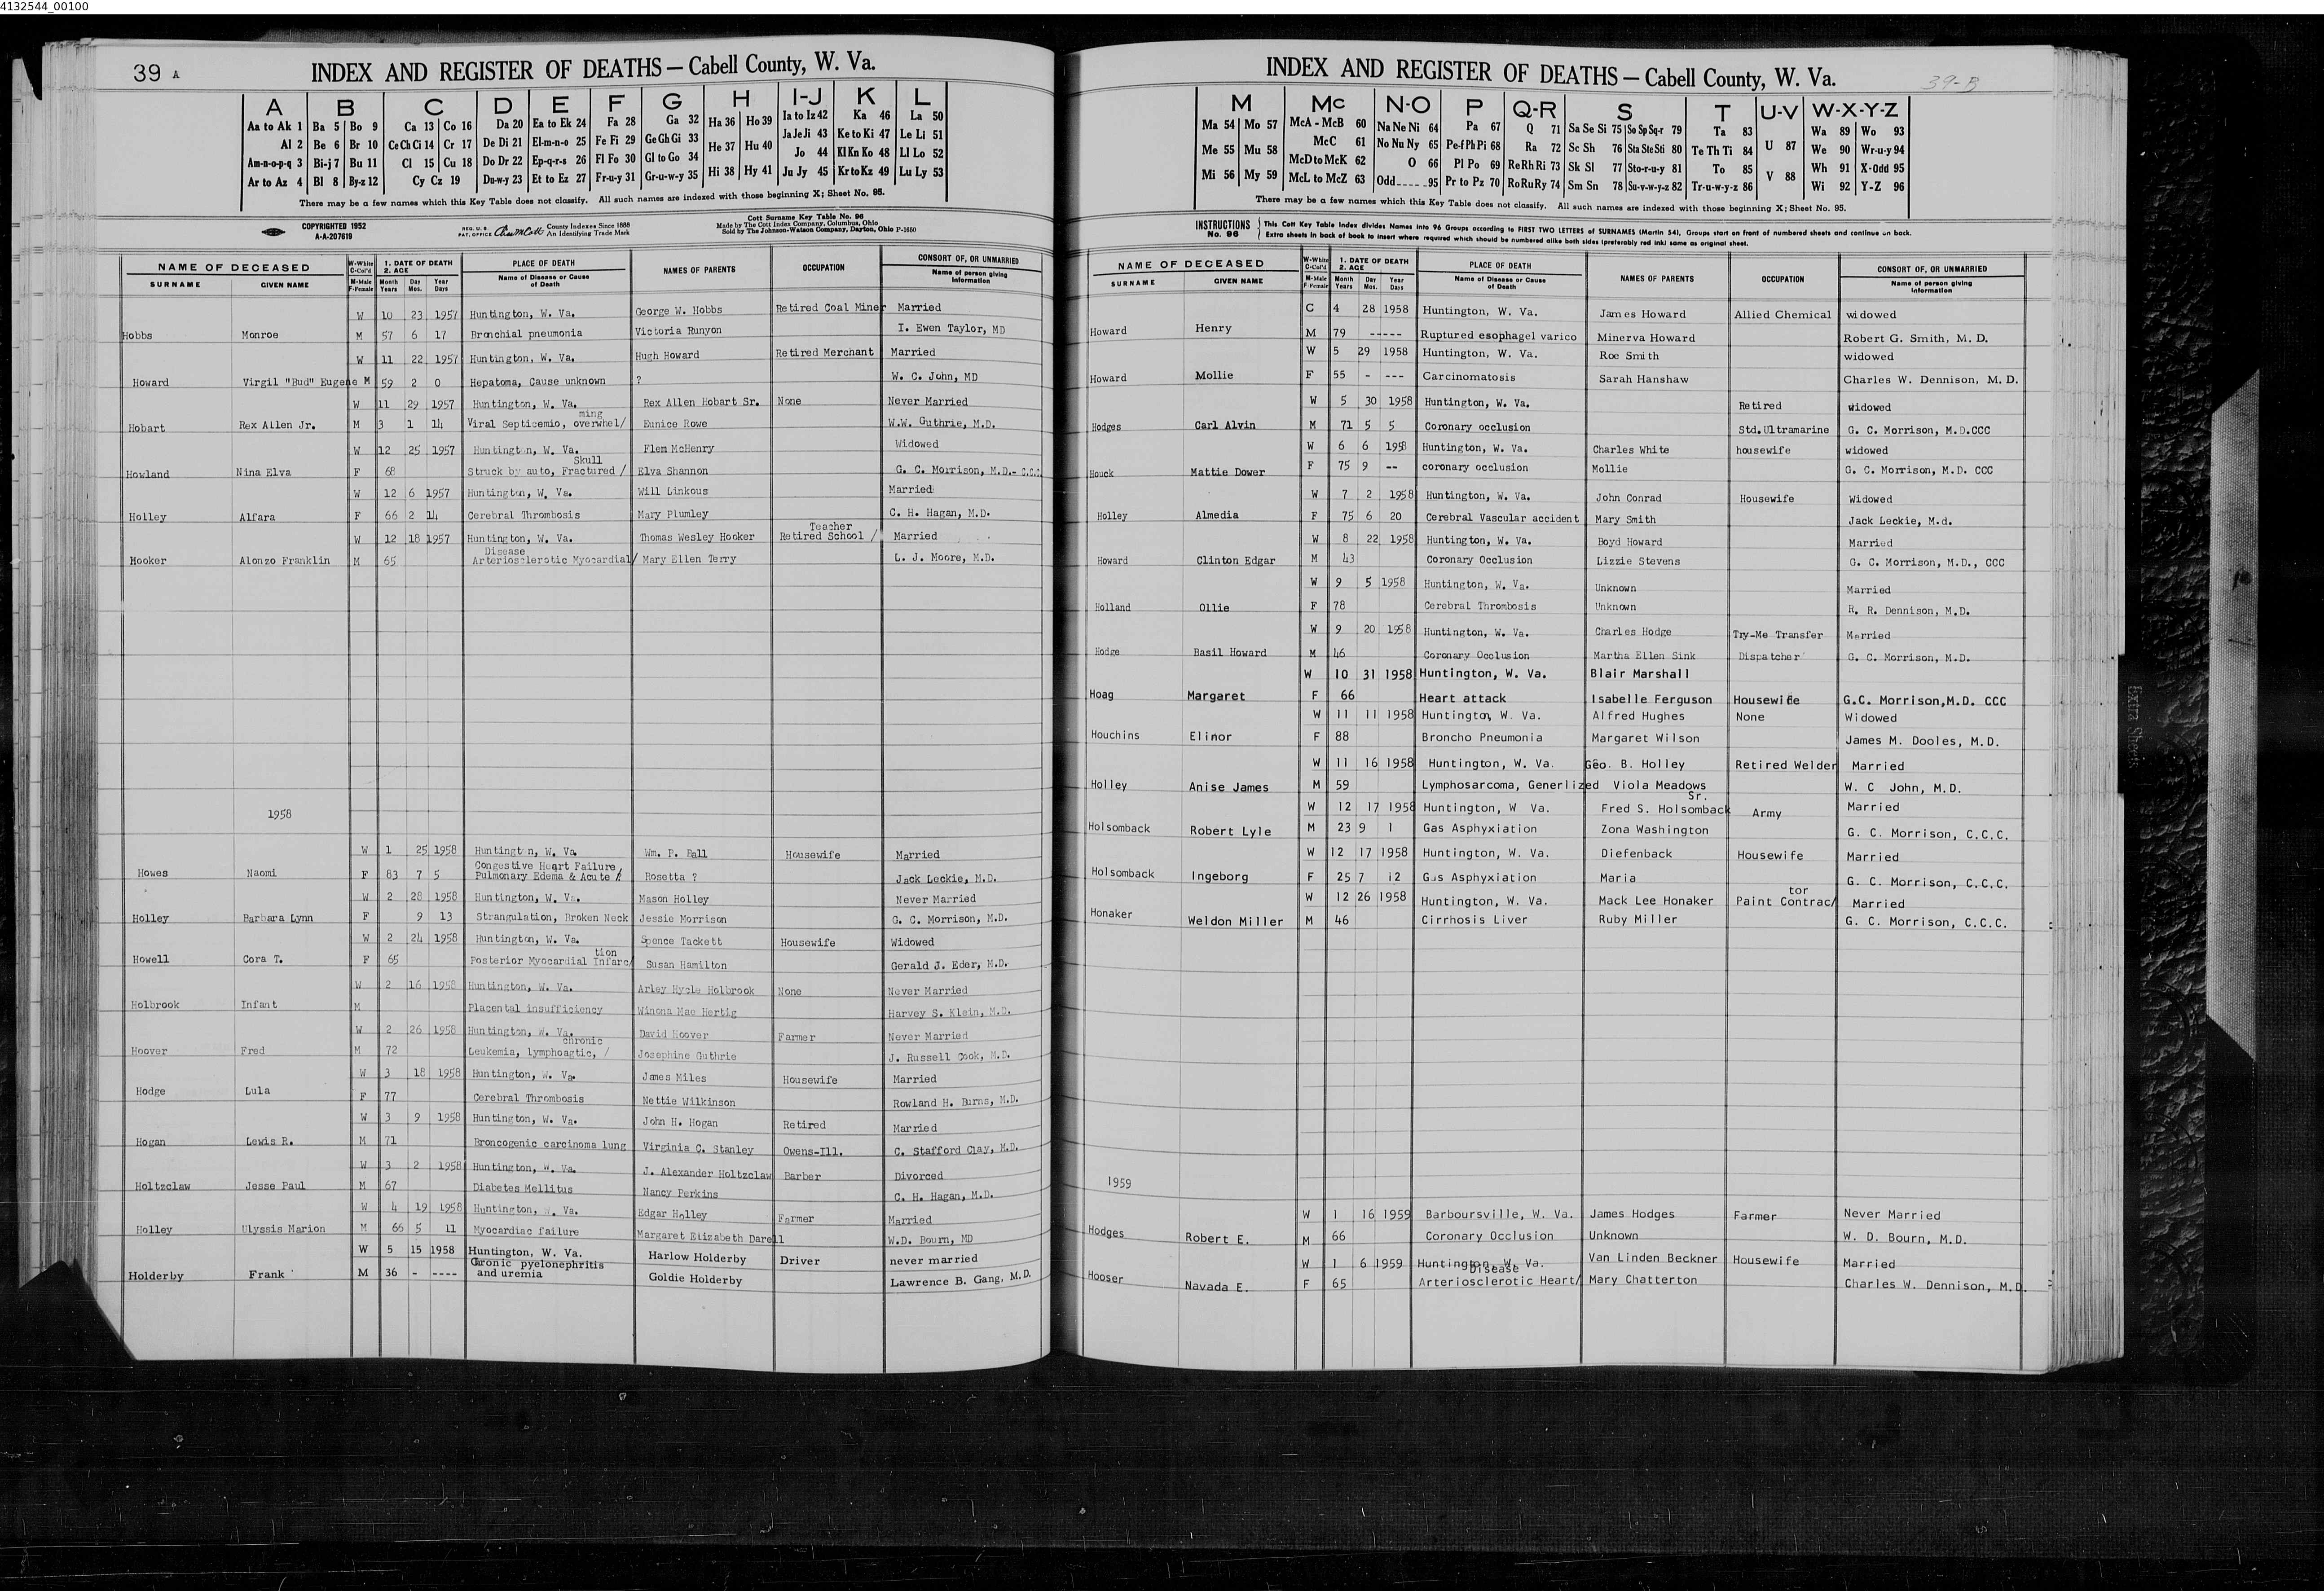 4132544_00100
39 A
INDEX AND REGISTER OF DEATHS — Cabell County, W. Va.
A B C D E F G H I-J K L
Aa to Ak 1 Ba 5 Bo 9 Ca 13 Co 16 Da 20 Ea to Ek 24 Fa 28 Ga 32 Ha 36 Ho 39 Ia to Iz 42 Ka 46 La 50
Al 2 Be 6 Br 10 Ce Ch Ci 14 Cr 17 De Di 21 El-m-n-o 25 Fe Fi 29 Ge Gh Gi 33 He 37 Hu 40 Ja Je Ji 43 Ke to Ki 47 Le Li 51
Am-n-o-p-q 3 Bi-j 7 Bu 11 Cl 15 Cu 18 Do Dr 22 Ep-q-r-s 26 Fl Fo 30 Gl to Go 34 Jo 44 Kl Kn Ko 48 Ll Lo 52
Ar to Az 4 Bl 8 By-z 12 Cy Cz 19 Du-w-y 23 Et to Ez 27 Fr-u-y 31 Gr-u-w-y 35 Hi 38 Hy 41 Ju Jy 45 Kr to Kz 49 Lu Ly 53
There may be a few names which this Key Table does not classify. All such names are indexed with those beginning X; Sheet No. 95.
COPYRIGHTED 1952
A-A-207619
REG. U. S. PAT. OFFICE County Indexes Since 1888
An Identifying Trade Mark
Cott Surname Key Table No. 96
Made by The Cott Index Company, Columbus, Ohio
Sold by The Johnson-Watson Company, Dayton, Ohio P-1650
NAME OF DECEASED W-White C-Col'd 1. DATE OF DEATH 2. AGE PLACE OF DEATH NAMES OF PARENTS OCCUPATION CONSORT OF, OR UNMARRIED
SURNAME GIVEN NAME M-Male F-Female Month Years Day Mos. Year Days Name of Disease or Cause of Death Name of person giving Information
W 10 23 1957 Huntington, W. Va. George W. Hobbs Retired Coal Miner Married
Hobbs Monroe M 57 6 17 Bronchial pneumonia Victoria Runyon I. Ewen Taylor, MD
W 11 22 1957 Huntington, W. Va. Hugh Howard Retired Merchant Married
Howard Virgil "Bud" Eugene M 59 2 0 Hepatoma, Cause unknown ? W. C. John, MD
W 11 29 1957 Huntington, W. Va. Rex Allen Hobart Sr. None Never Married
ming
Hobart Rex Allen Jr. M 3 1 14 Viral Septicemio, overwhel/ Eunice Rowe W.W. Guthrie, M.D.
W 12 25 1957 Huntington, W. Va. Flem McHenry Widowed
Skull
Howland Nina Elva F 68 Struck by auto, Fractured / Elva Shannon G. C. Morrison, M.D.- C.C.C.
W 12 6 1957 Huntington, W. Va. Will Linkous Married
Holley Alfara F 66 2 14 Cerebral Thrombosis Mary Plumley C. H. Hagan, M.D.
Teacher
W 12 18 1957 Huntington, W. Va. Thomas Wesley Hooker Retired School / Married
Disease
Hooker Alonzo Franklin M 65 Arteriosclerotic Myocardial/ Mary Ellen Terry L. J. Moore, M.D.
1958
W 1 25 1958 Huntington, W. Va. Wm. P. Ball Housewife Married
Congestive Heart Failure/
Howes Naomi F 83 7 5 Pulmonary Edema & Acute /: Rosetta ? Jack Leckie, M.D.
W 2 28 1958 Huntington, W. Va. Mason Holley Never Married
Holley Barbara Lynn F 9 13 Strangulation, Broken Neck Jessie Morrison G. C. Morrison, M.D.
W 2 24 1958 Huntington, W. Va. Spence Tackett Housewife Widowed
tion
Howell Cora T. F 65 Posterior Myocardial Infarc/ Susan Hamilton Gerald J. Eder, M.D.
W 2 16 1958 Huntington, W. Va. Arley Hycle Holbrook None Never Married
Holbrook Infant M Placental insufficiency Winona Mae Hertig Harvey S. Klein, M.D.
W 2 26 1958 Huntington, W. Va. David Hoover Farmer Never Married
chronic
Hoover Fred M 72 Leukemia, lymphoagtic, / Josephine Guthrie J. Russell Cook, M.D.
W 3 18 1958 Huntington, W. Va. James Miles Housewife Married
Hodge Lula F 77 Cerebral Thrombosis Nettie Wilkinson Rowland H. Burns, M.D.
W 3 9 1958 Huntington, W. Va. John H. Hogan Retired Married
Hogan Lewis R. M 71 Broncogenic carcinoma lung Virginia C. Stanley Owens-Ill. C. Stafford Clay, M.D.
W 3 2 1958 Huntington, W. Va. J. Alexander Holtzclaw Barber Divorced
Holtzclaw Jesse Paul M 67 Diabetes Mellitus Nancy Perkins C. H. Hagan, M.D.
W 4 19 1958 Huntington, W. Va. Edgar Holley Farmer Married
Holley Ulyssis Marion M 66 5 11 Myocardiac failure Margaret Elizabeth Darell W.D. Bourn, MD
W 5 15 1958 Huntington, W. Va. Harlow Holderby Driver never married
Chronic pyelonephritis
Holderby Frank M 36 - ---- and uremia Goldie Holderby Lawrence B. Gang, M.D.
INDEX AND REGISTER OF DEATHS — Cabell County, W. Va.
39-B
M Mc N-O P Q-R S T U-V W-X-Y-Z
Ma 54 Mo 57 McA - McB 60 Na Ne Ni 64 Pa 67 Q 71 Sa Se Si 75 So Sp Sq-r 79 Ta 83 Wa 89 Wo 93
Me 55 Mu 58 McC 61 No Nu Ny 65 Pe-f Ph Pi 68 Ra 72 Sc Sh 76 Sta Ste Sti 80 Te Th Ti 84 U 87 We 90 Wr-u-y 94
McD to McK 62 O 66 Pl Po 69 Re Rh Ri 73 Sk Sl 77 Sto-r-u-y 81 To 85 Wh 91 X-Odd 95
Mi 56 My 59 McL to McZ 63 Odd 95 Pr to Pz 70 Ro Ru Ry 74 Sm Sn 78 Su-v-w-y-z 82 Tr-u-w-y-z 86 V 88 Wi 92 Y-Z 96
There may be a few names which this Key Table does not classify. All such names are indexed with those beginning X; Sheet No. 95.
INSTRUCTIONS No. 96 This Cott Key Table Index divides Names into 96 Groups according to FIRST TWO LETTERS of SURNAMES (Martin 54). Groups start on front of numbered sheets and continue on back.
Extra sheets in back of book to insert where required which should be numbered alike both sides (preferably red ink) same as original sheet.
NAME OF DECEASED W-White C-Col'd 1. DATE OF DEATH 2. AGE PLACE OF DEATH NAMES OF PARENTS OCCUPATION CONSORT OF, OR UNMARRIED
SURNAME GIVEN NAME M-Male F Female Month Years Day Mos. Year Days Name of Disease or Cause of Death Name of person giving information
C 4 28 1958 Huntington, W. Va. James Howard Allied Chemical widowed
Howard Henry M 79 ----- Ruptured esophagel varico Minerva Howard Robert G. Smith, M. D.
W 5 29 1958 Huntington, W. Va. Roe Smith widowed
Howard Mollie F 55 - --- Carcinomatosis Sarah Hanshaw Charles W. Dennison, M. D.
W 5 30 1958 Huntington, W. Va. Retired widowed
Hodges Carl Alvin M 71 5 5 Coronary occlusion Std.Ultramarine G. C. Morrison, M.D.CCC
W 6 6 1958 Huntington, W. Va. Charles White housewife widowed
Houck Mattie Dower F 75 9 -- coronary occlusion Mollie G. C. Morrison, M.D. CCC
W 7 2 1958 Huntington, W. Va. John Conrad Housewife Widowed
Holley Almedia F 75 6 20 Cerebral Vascular accident Mary Smith Jack Leckie, M.d.
W 8 22 1958 Huntington, W. Va. Boyd Howard Married
Howard Clinton Edgar M 43 Coronary Occlusion Lizzie Stevens G. C. Morrison, M.D., CCC
W 9 5 1958 Huntington, W. Va. Unknown Married
Holland Ollie F 78 Cerebral Thrombosis Unknown R. R. Dennison, M.D.
W 9 20 1958 Huntington, W. Va. Charles Hodge Try-Me Transfer Married
Hodge Basil Howard M 46 Coronary Occlusion Martha Ellen Sink Dispatcher G. C. Morrison, M.D.
W 10 31 1958 Huntington, W. Va. Blair Marshall
Hoag Margaret F 66 Heart attack Isabelle Ferguson Housewife G.C. Morrison,M.D. CCC
W 11 11 1958 Huntington, W. Va. Alfred Hughes None Widowed
Houchins Elinor F 88 Broncho Pneumonia Margaret Wilson James M. Dooles, M.D.
W 11 16 1958 Huntington, W. Va. Geo. B. Holley Retired Welder Married
Holley Anise James M 59 Lymphosarcoma, Generlized Viola Meadows W. C John, M.D.
Sr.
W 12 17 1958 Huntington, W Va. Fred S. Holsomback Army Married
Holsomback Robert Lyle M 23 9 1 Gas Asphyxiation Zona Washington G. C. Morrison, C.C.C.
W 12 17 1958 Huntington, W. Va. Diefenback Housewife Married
Holsomback Ingeborg F 25 7 12 Gas Asphyxiation Maria G. C. Morrison, C.C.C.
tor
W 12 26 1958 Huntington, W. Va. Mack Lee Honaker Paint Contrac/ Married
Honaker Weldon Miller M 46 Cirrhosis Liver Ruby Miller G. C. Morrison, C.C.C.
1959
W 1 16 1959 Barboursville, W. Va. James Hodges Farmer Never Married
Hodges Robert E. M 66 Coronary Occlusion Unknown W. D. Bourn, M.D.
W 1 6 1959 Huntington, W. Va. Van Linden Beckner Housewife Married
Disease
Hooser Navada E. F 65 Arteriosclerotic Heart/ Mary Chatterton Charles W. Dennison, M.D.